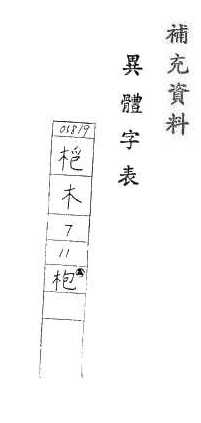 補充資料
異體字表
01819
木
7
11
枹